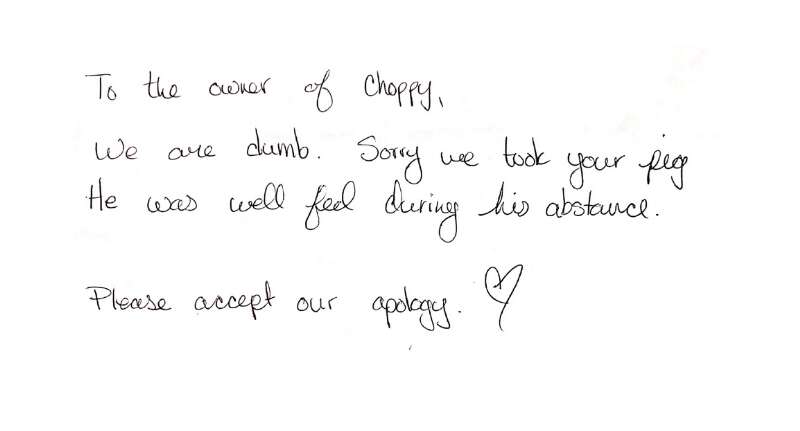 To the owner of Choppy,
We are dumb. Sorry we took your pig
He was well feel during his abstance.
Please accept our apology.